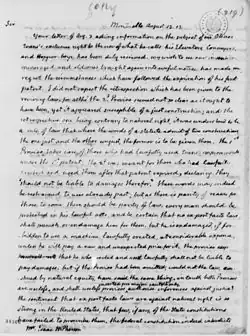 Copy
Sir Monticello August 13. 13.
Your letter of Aug. 3 asking information on the subject of mr Oliver
Evans's exclusive right to the use of what he calls his Elevators, Conveyers,
and Hopper-boys, has been duly received. my wish to see new inventions
encouraged, and old ones brought again into useful notice, has made me
regret the circumstances which have followed the expiration of his first
patent. I did not expect the retrospection which has been given to the
reviving law. for altho' the 2d. Proviso seemed not so clear as it ought to have
been, yet it appeared susceptible of a just construction; and the
retrospective one being contrary to natural right, it was understood to be
a rule of law that where the words of a statute admit of two constructions,
the one just and the other unjust, the former is to be given them. the 1st
Proviso
under the 1st patent. the 2d. was meant for those who had lawfully
erected and used them after that patent expired, declaring they
'should not be liable to damages therefor.' these words may indeed
be restrained to uses already past; but as there is parity of reason for
those to come, there should be parity of law. every man should be
protected in his lawful acts, and be certain that no ex post facto law
shall punish or endamage him for them. but he is endamaged if for-
bidden to use a machine lawfully erected, at considerable expence,
unless he will pay a new and unexpected price for it. the proviso says
that he who erected and used lawfully shall not be liable to
pay damages. but if the proviso had been omitted, would not the law, con-
strued by natural equity, have said the same thing.
the sentiment that ex post facto laws are against natural right is so
strong in the United States, that few, if any of the State constitutions
have failed to proscribe them. the federal constitution indeed interdicts
mr Isaac McPherson